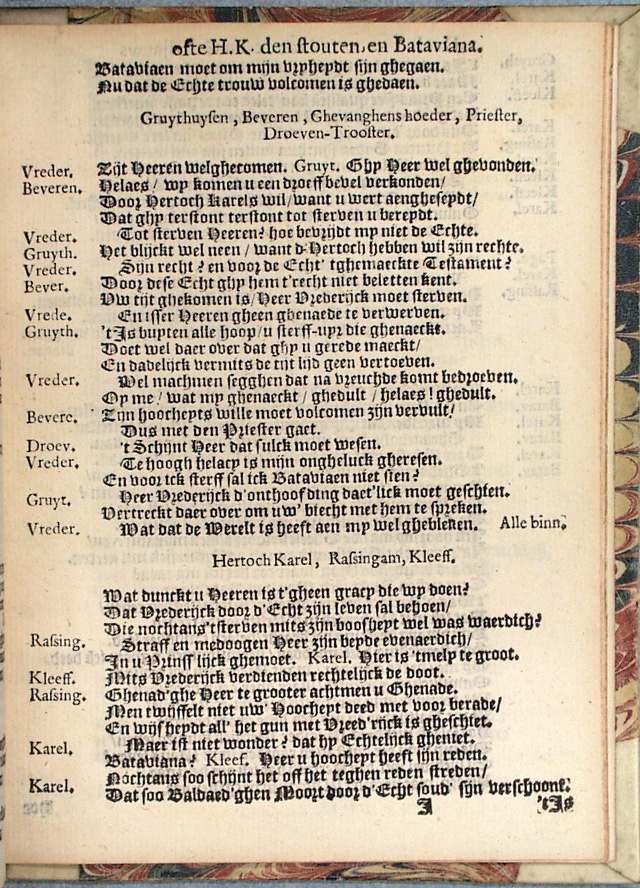 ofte H.K. den stouten, en Bataviana.
Bataviaen moet om mijn vryheydt sijn ghegaen.
Nu dat de Echte trouw volcomen is ghedaen.
Gruythuysen, Beveren, Ghevanghens hoeder, Priester,
Droeven-Trooster.
Vreder. Zijt Heeren welghecomen. Gruyt. Ghy Heer wel ghevonden.
Beveren. Helaes / wy komen u een droeff bevel verkonden /
Door Hertoch Karels wil / want u wert aengheseydt /
Dat ghy terstont terstont tot sterven u bereydt.
Vreder. Tot sterven Heeren? hoe bevrijdt my niet de Echte.
Gruyth. Het blijckt wel neen / want d'Hertoch hebben wil zijn rechte.
Vreder. Sijn recht? en voor de Echt' tghemaeckte Testament?
Bever. Door dese Echt ghy hem t'recht niet beletten kent.
Uw tijt ghekomen is / Heer Vrederijck moet sterven.
Vrede. En isser Heeren gheen ghenaede te verwerven.
Gruyth. 't Is buyten alle hoop / u sterff-uyr die ghenaeckt.
Doet wel daer over dat ghy u gerede maeckt /
En dadelijck vermits de tijt lijd geen vertoeven.
Vreder. Wel machmen segghen dat na vreuchde komt bedroeven.
Oy me / wat my ghenaeckt / ghedult / helaes! ghedult.
Bevere. Zijn hoocheyts wille moet volcomen zijn vervult /
Dus met den Priester gaet.
Droev. 't Schijnt Heer dat sulck moet wesen.
Vreder. Te hoogh helacy is mijn ongheluck gheresen.
En voor ick sterff sal ick Bataviaen niet sien?
Gruyt. Heer Vrederijck d'onthoofding daet'lick moet geschien.
Vertreckt daer over om uw' biecht met hem te spreken.
Vreder. Wat dat de Werelt is heeft aen my wel ghebleken. Alle binn.
Hertoch Karel, Rassingam, Kleeff.
Wat dunckt u Heeren is t'gheen gracy die wy doen?
Dat Vrederijck door d'Echt zijn leven sal behoen /
Die nochtans 't sterven mits zijn boosheyt wel was waerdich?
Rassing. Straff en medoogen Heer zijn beyde evenaerdich /
In u Prinss'lijck ghemoet. Karel. Hier is 't melp te groot.
Kleeff. Mits Vrederijck verdienden rechtelijck de doot.
Rassing. Ghenad'ghe Heer te grooter achtmen u Ghenade.
Men twijffelt niet uw' Hoocheyt deed met voor berade /
En wijsheydt all' het gun met Vreed'rijck is gheschiet.
Karel. Maer ist niet wonder? dat hy Echtelijck gheniet.
Bataviana? Kleef. Heer u hoocheyt heeft sijn reden.
Nochtans soo schijnt het off het teghen reden streden /
Karel. Dat soo Baldaed'ghen Moort door d'Echt soud' sijn verschoont.
I 't Is